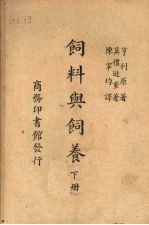 亨利原著
莫禮遜重著
陳宰均譯
飼料與飼養
下冊
商務印書館發行